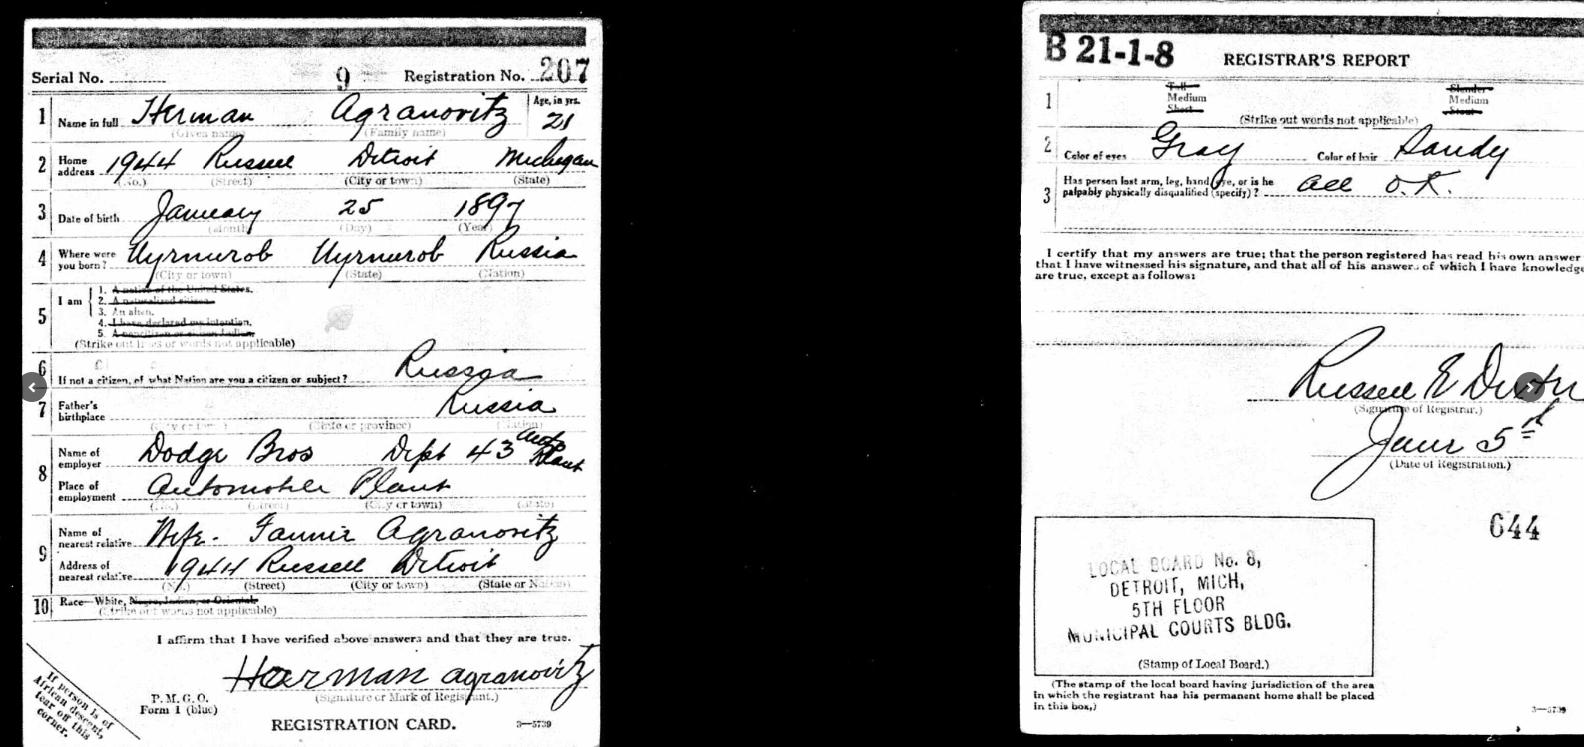 Serial No. 9 Registration No. 207
1 Name in full Herman Agranovitz Age, in yrs. 21
(Given name) (Family name)
2 Home address 1944 Russell Detroit Michigan
(No.) (Street) (City or town) (State)
3 Date of birth January 25 1897
(Month) (Day) (Year)
4 Where were you born? Russia
(City or town) (State) (Nation)
5 I am
1. A native of the United States.
2. A naturalized citizen.
3. An alien.
4. I have declared my intention.
5. A noncitizen or citizen Indian.
(Strike out lines or words not applicable)
6 If not a citizen, of what Nation are you a citizen or subject? Russia
7 Father's birthplace Russia
(City or town) (State or province) (Nation)
8 Name of employer Dodge Bros Dept 43 Plant
Place of employment Automobile Plant
(No.) (Street) (City or town) (State)
9 Name of nearest relative Wife - Fannie Agranovitz
Address of nearest relative 1944 Russell Detroit
(No.) (Street) (City or town) (State or Nation)
10 Race—White, Negro, Indian, or Oriental
(Strike out words not applicable)
I affirm that I have verified above answers and that they are true.
Herman Agranovitz
(Signature or Mark of Registrant.)
P. M. G. O.
Form 1 (blue)
REGISTRATION CARD.
3—5739
If person is of
African descent,
tear off this
corner.
B 21-1-8 REGISTRAR'S REPORT
1 Tall Medium Short Slender Medium Stout
(Strike out words not applicable)
2 Color of eyes Gray Color of hair Sandy
3 Has person lost arm, leg, hand, eye, or is he
palpably physically disqualified (specify)? all O.K.
I certify that my answers are true; that the person registered has read his own answer
that I have witnessed his signature, and that all of his answers of which I have knowledge
are true, except as follows:
Russell E
(Signature of Registrar.)
June 5th
(Date of Registration.)
644
LOCAL BOARD No. 8,
DETROIT, MICH,
5TH FLOOR
MUNICIPAL COURTS BLDG.
(Stamp of Local Board.)
(The stamp of the local board having jurisdiction of the area
in which the registrant has his permanent home shall be placed
in this box.)
3—5739